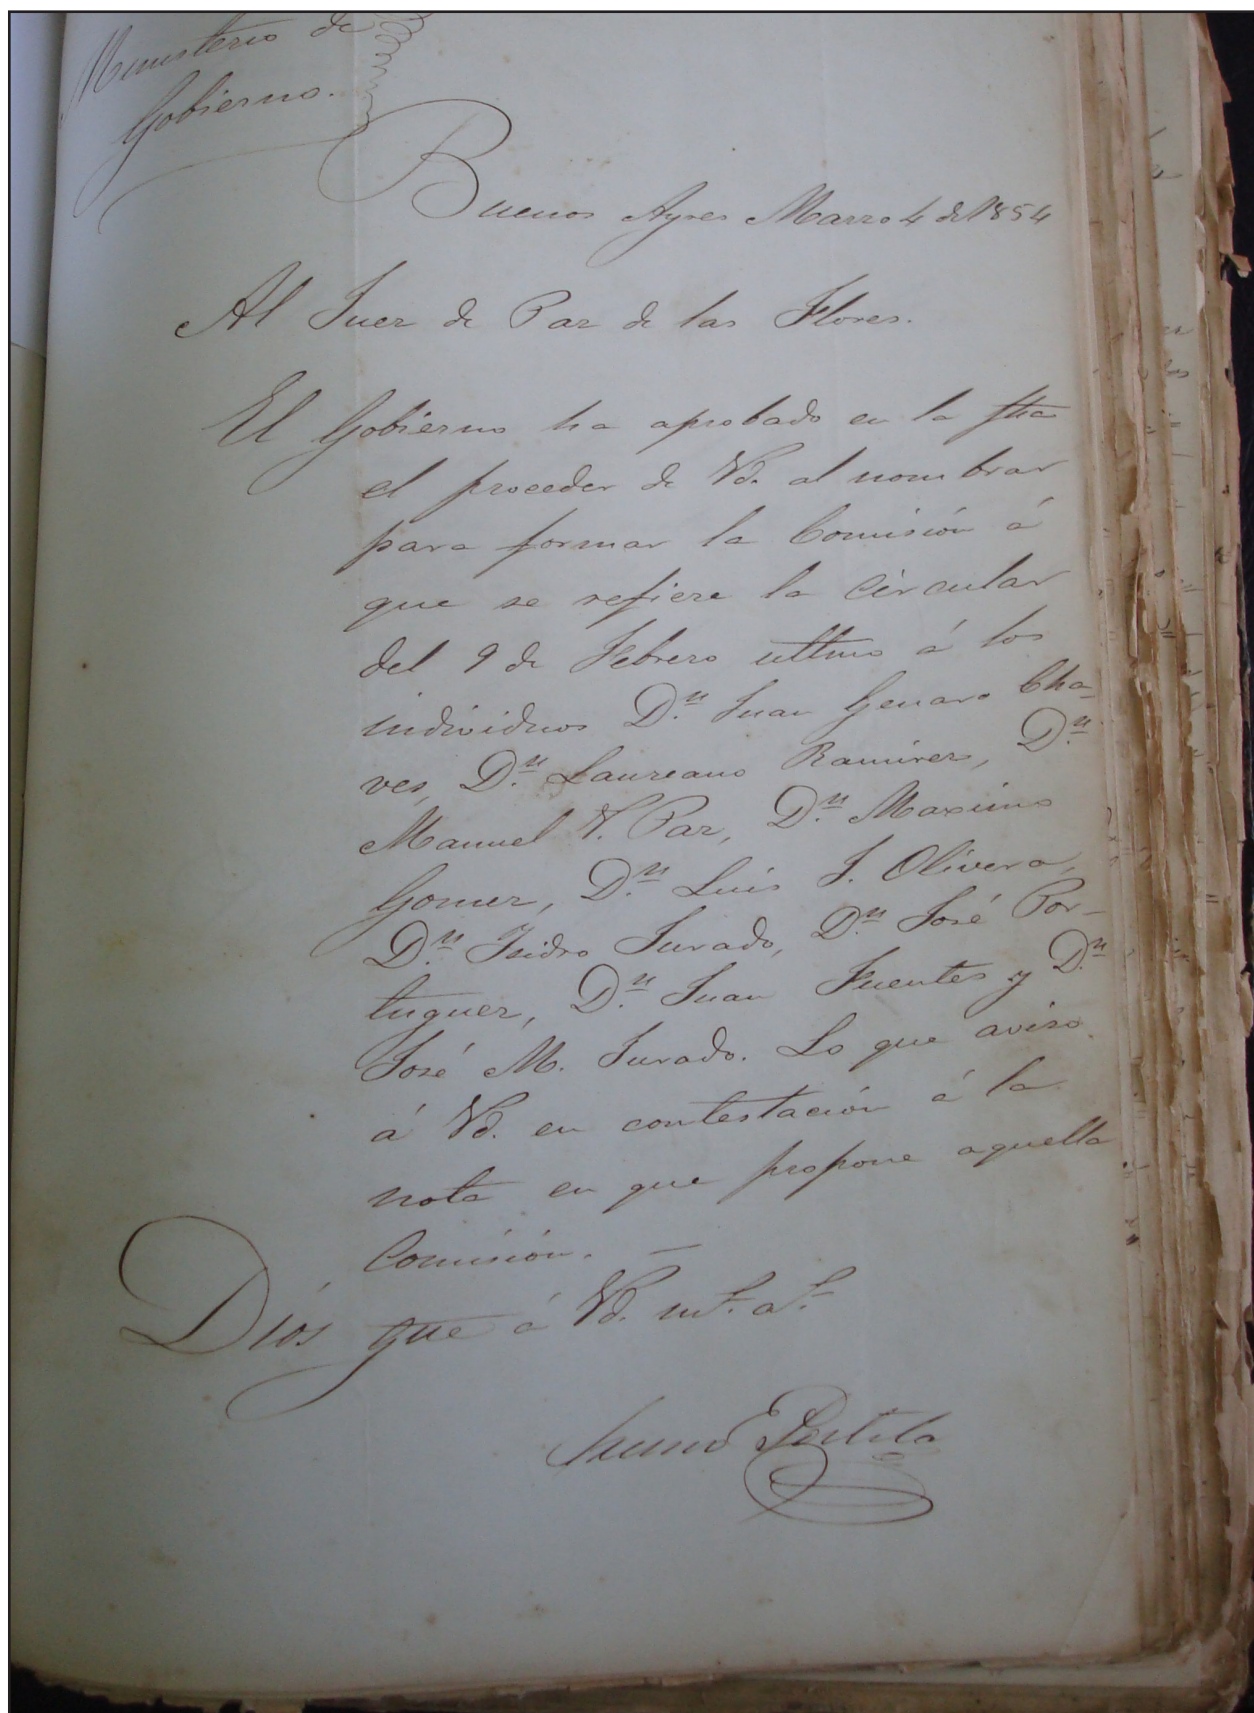 Ministerio de
Gobierno.
Buenos Ayres Marzo 4 de 1854
Al Juez de Paz de las Flores.
El Gobierno ha aprobado en la fha
el proceder de Vd. al nombrar
para formar la Comisión á
que se refiere la Circular
del 9 de Febrero ultimo á los
individuos D.n Juan Genaro Cha-
ves, D.n Laureano Ramirez, D.n
Manuel V. Paz, D.n Maximo
Gomez, D.n Luis J. Olivera,
D.n Isidro Jurado, D.n José Por-
tuguez, D.n Juan Fuentes y D.n
José M. Jurado. Lo que aviso
á Vd. en contestación á la
nota en que propone aquella
Comisión. —
Diós gue á Vd. m.s a.s